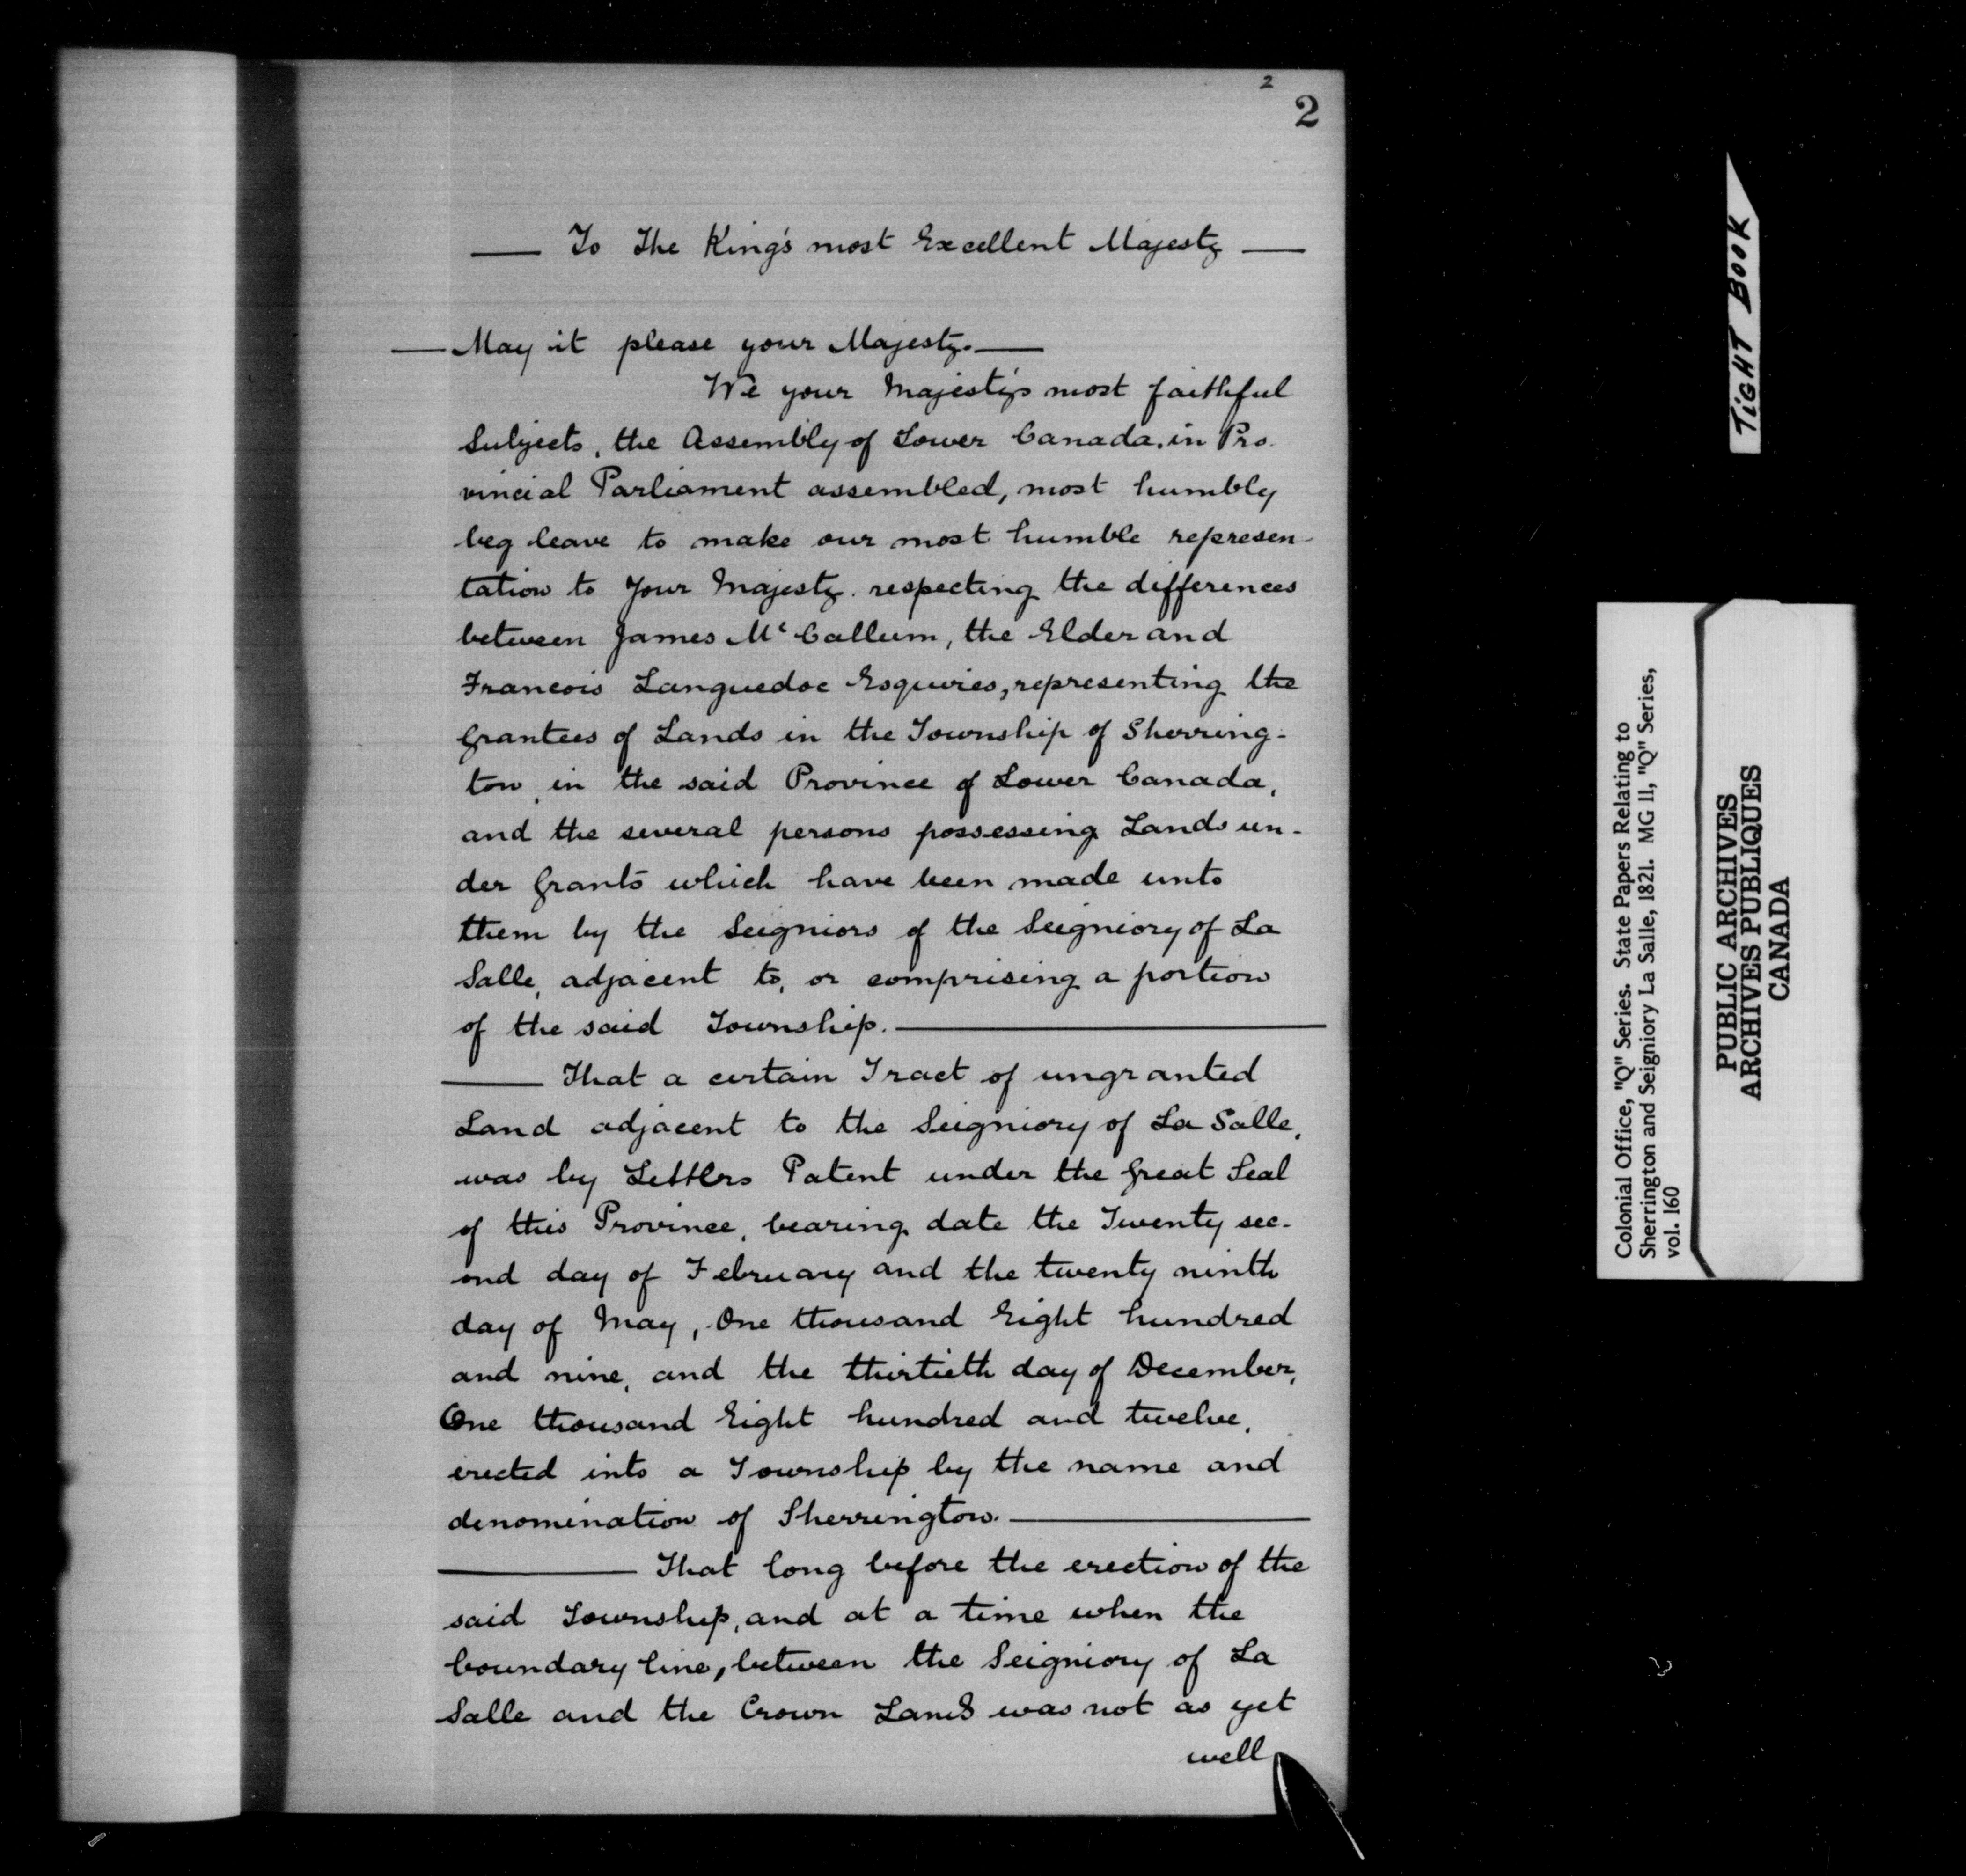 2
2
— To The King's most Excellent Majesty —
— May it please your Majesty. —
We your Majesty's most faithful
Subjects, the Assembly of Lower Canada, in Pro-
vincial Parliament assembled, most humbly
beg leave to make our most humble represen-
tation to Your Majesty. respecting the differences
between James Mc Callum, the Elder and
Francois Languedoc Esquires, representing the
Grantees of Lands in the Township of Sherring-
ton, in the said Province of Lower Canada,
and the several persons possessing Lands un-
der Grants which have been made unto
them by the Seigniors of the Seigniory of La
Salle, adjacent to, or comprising a portion
of the said Township. —
— That a certain Tract of ungranted
Land adjacent to the Seigniory of La Salle,
was by Letters Patent under the Great Seal
of this Province, bearing date the Twenty sec-
ond day of February and the twenty ninth
day of May, One thousand Eight hundred
and nine, and the thirtieth day of December,
One thousand Eight hundred and twelve,
erected into a Township by the name and
denomination of Sherrington. —
— That long before the erection of the
said Township, and at a time when the
boundary line, between the Seigniory of La
Salle and the Crown Lands was not as yet
well
TIGHT BOOK
Colonial Office, "Q" Series. State Papers Relating to
Sherrington and Seigniory La Salle, 1821. MG 11, "Q" Series,
vol. 160
PUBLIC ARCHIVES
ARCHIVES PUBLIQUES
CANADA